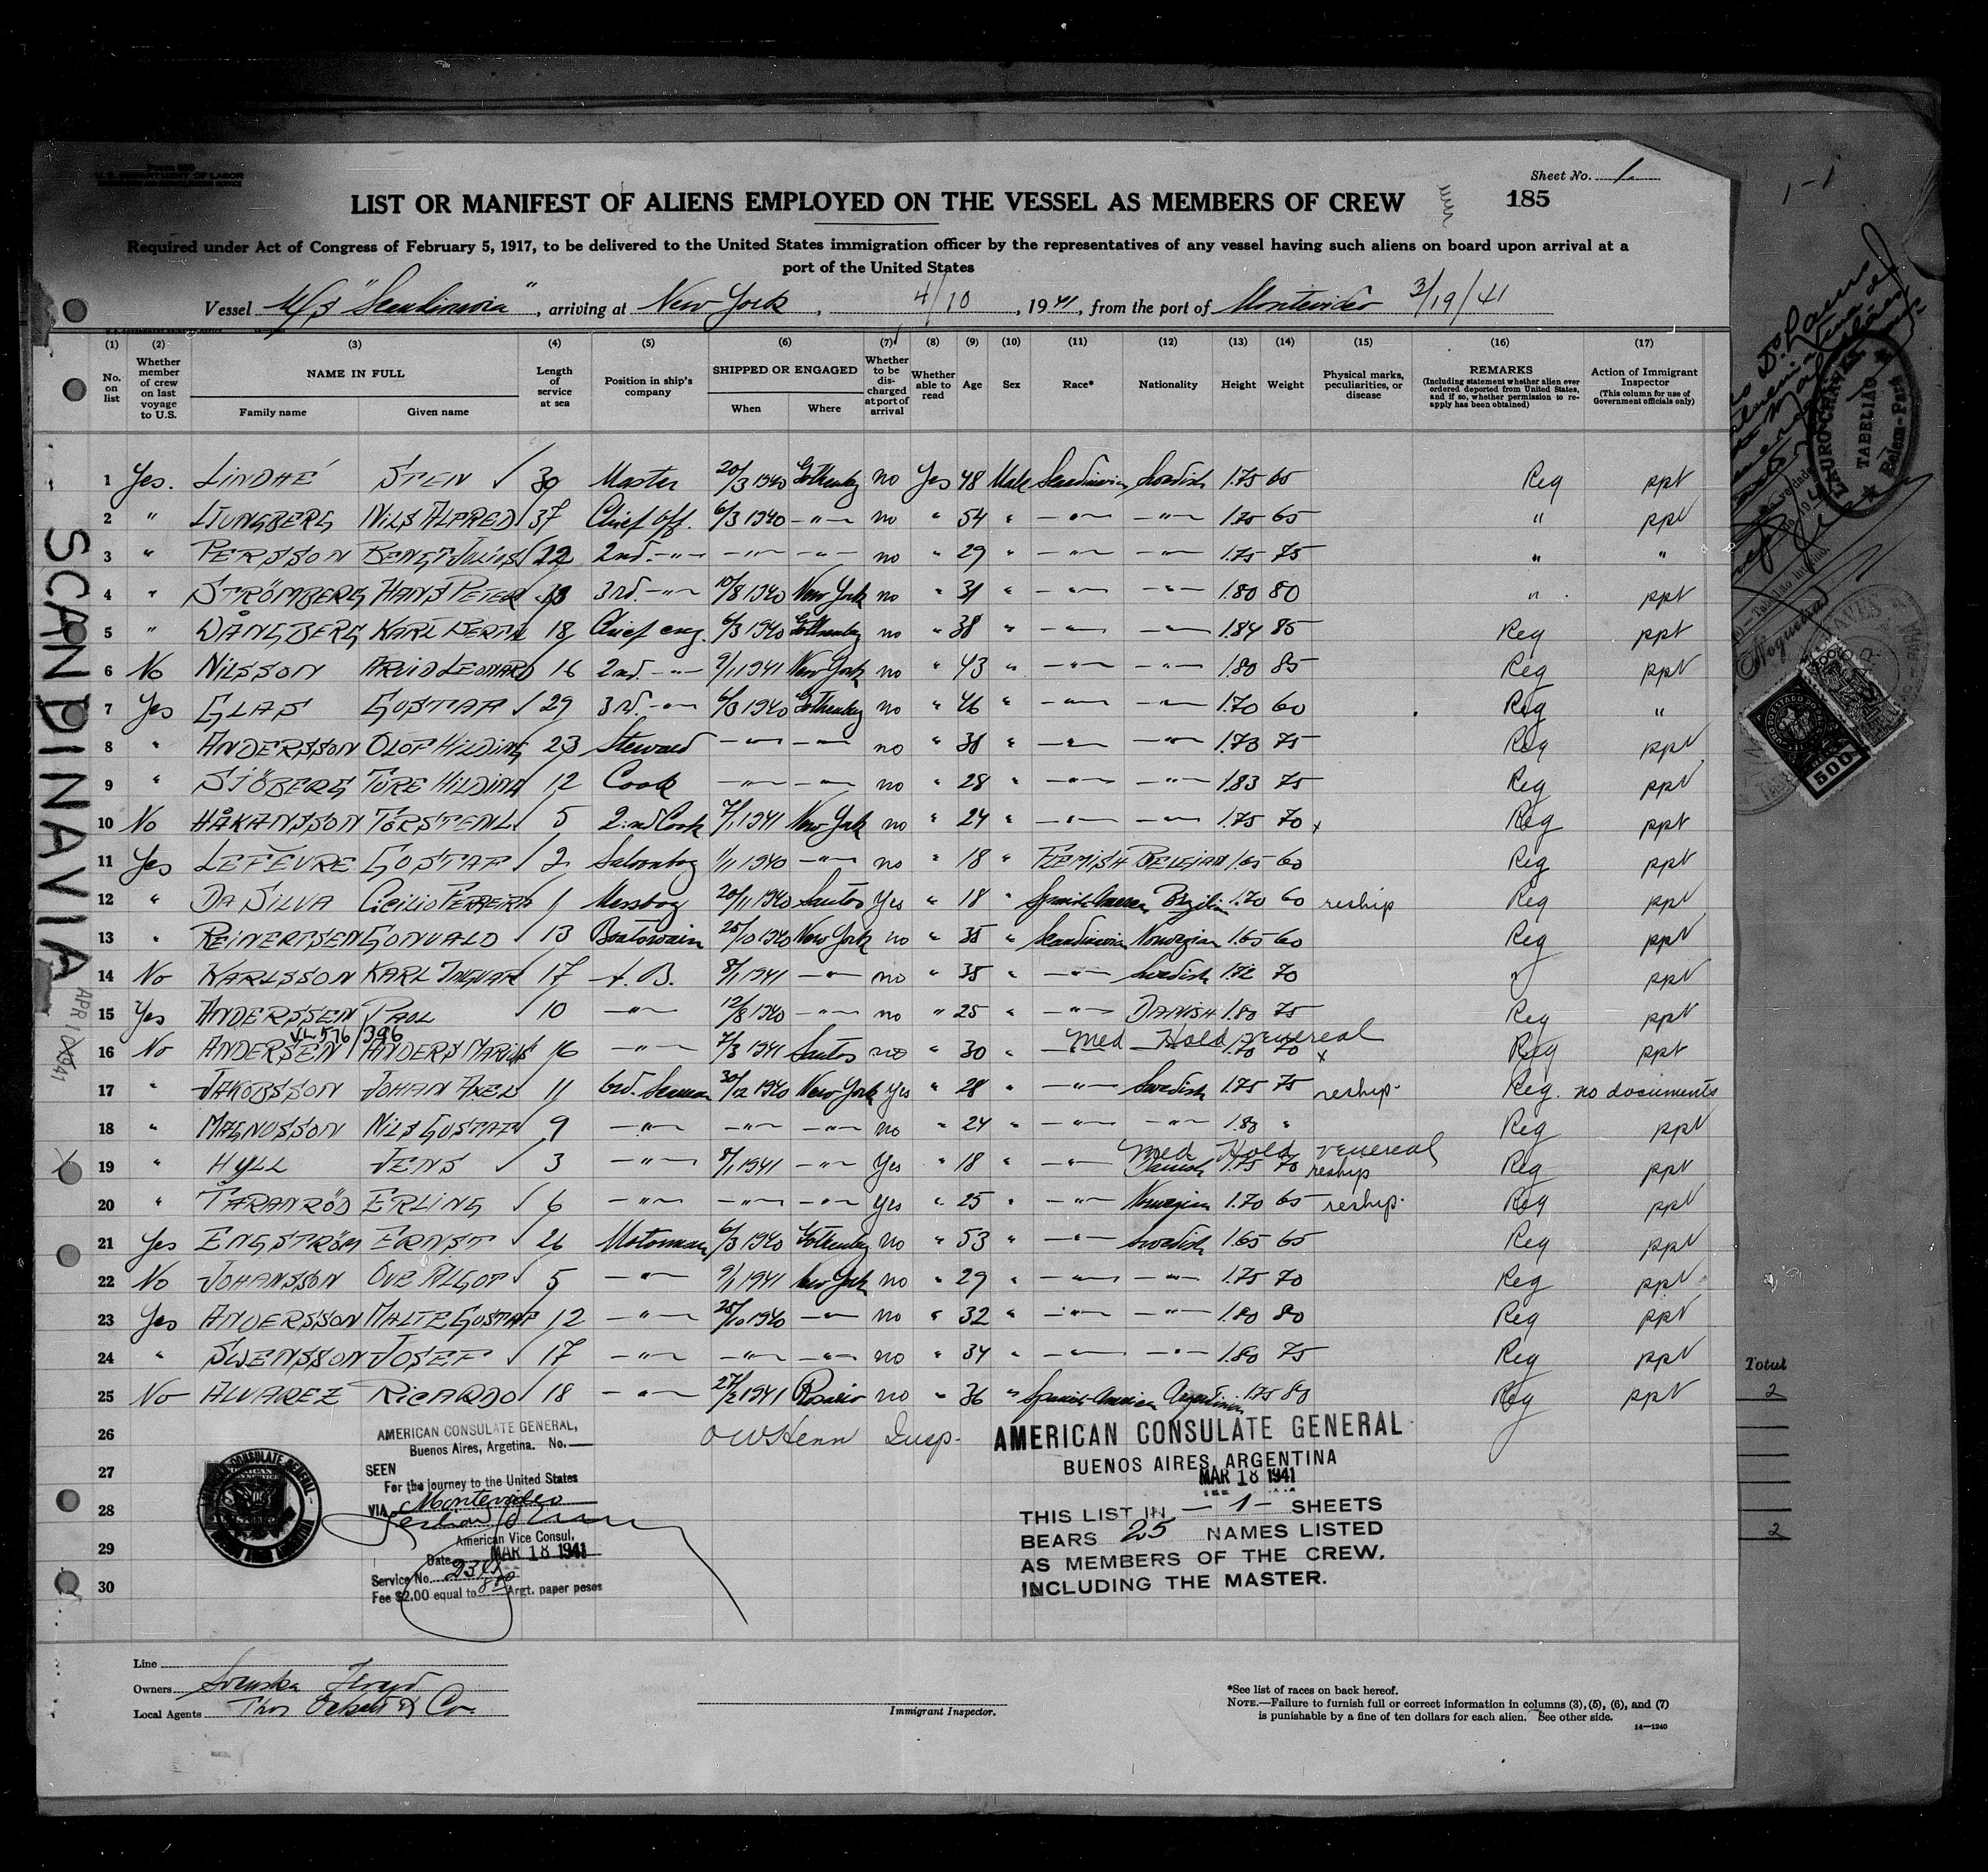 Sheet No. 1.
U. S. DEPARTMENT OF LABOR
LIST OR MANIFEST OF ALIENS EMPLOYED ON THE VESSEL AS MEMBERS OF CREW
185
Required under Act of Congress of February 5, 1917, to be delivered to the United States immigration officer by the representatives of any vessel having such aliens on board upon arrival at a
port of the United States
Vessel M/S "Scandinavia", arriving at New York, 4/10, 1941, from the port of Montevideo 3/19/41
(1) (2) (3) (4) (5) (6) (7) (8) (9) (10) (11) (12) (13) (14) (15) (16) (17)
No. on list
Whether member of crew on last voyage to U.S.
NAME IN FULL
Family name Given name
Length of service at sea
Position in ship's company
SHIPPED OR ENGAGED
When Where
Whether to be discharged at port of arrival
Whether able to read
Age
Sex
Race*
Nationality
Height
Weight
Physical marks, peculiarities, or disease
REMARKS
(Including statement whether alien ever ordered deported from United States, and if so, whether permission to reapply has been obtained)
Action of Immigrant Inspector
(This column for use of Government officials only)
1 Yes. LINDHÉ STEN √ 30 Master 20/3 1940 Gothenbg no Yes 48 Male Scandinavian Swedish 1.75 65 Reg ppt
2 " LJUNGBERG NILS ALFRED √ 37 Chief off. 6/3 1940 —"— no " 54 " —"— —"— 1.75 65 " ppt
3 " PERSSON BENGT JULIUS √ 12 2nd. —"— —"— —"— no " 29 " —"— —"— 1.75 75 " "
4 " STRÖMBERG HANS PETER 13 3rd. —"— 10/8 1940 New York no " 31 " —"— —"— 1.80 80 " ppt
5 " WÅNGBERG KARL BERTIL 18 Chief eng. 6/3 1940 Gothenbg no " 38 " —"— —"— 1.84 85 Reg ppt
6 No NILSSON ARVID LEONARD 16 2nd. —"— 9/1 1941 New York no " 43 " —"— —"— 1.80 85 Reg ppt
7 Yes GLAS GUSTAF √ 29 3rd. —"— 6/3 1940 Gothenbg no " 46 " —"— —"— 1.70 60 Reg "
8 " ANDERSSON OLOF HILDING 23 Steward —"— —"— no " 38 " —"— —"— 1.73 75 Reg ppt
9 " SJÖBERG TURE HILDING 12 Cook —"— —"— no " 28 " —"— —"— 1.83 75 Reg ppt
10 No HÅKANSSON TORSTEN √ 5 2:nd Cook 7/1 1941 New York no " 24 " —"— —"— 1.75 70 x Reg ppt
11 Yes LEFÈVRE GUSTAF √ 2 Saloonboy 1/11 1940 —"— no " 18 " FLEMISH BELGIAN 1.65 60 Reg ppt
12 " DA SILVA CICILIO FERREIRA √ 1 Messboy 20/11 1940 Santos Yes " 18 " Spanish American Brazilian 1.70 60 reship Reg ppt
13 " REINERTSEN GONVALD √ 13 Boatswain 25/10 1940 New York no " 35 " Scandinavian Norwegian 1.65 60 Reg ppt
14 No KARLSSON KARL INGVAR √ 17 A. B. 8/1 1941 —"— no " 35 " —"— Swedish 1.72 70 " ppt
15 Yes ANDERSSEN PAUL √ 10 —"— 12/8 1940 —"— no " 25 " —"— DANISH 1.80 75 Reg ppt
VL 576/396 Med Hold venereal
16 No ANDERSEN ANDERS MARIUS 16 —"— 7/3 1941 Santos no " 30 " —"— —"— 1.70 70 x Reg ppt
17 " JAKOBSSON JOHAN AXEL 11 Ord. Seaman 30/12 1940 New York Yes " 28 " —"— Swedish 1.75 75 reship. Reg. no documents
18 " MAGNUSSON NILS GUSTAF √ 9 —"— —"— —"— no " 24 " —"— —"— 1.80 " Reg ppt
Med Hold venereal
19 " HYLL JENS √ 3 —"— 8/1 1941 —"— Yes " 18 " —"— Danish 1.75 70 reship Reg ppt
20 " TARANRÖD ERLING √ 6 —"— —"— —"— Yes " 25 " —"— Norwegian 1.70 65 reship. Reg ppt
21 Yes ENGSTRÖM ERNST √ 26 Motorman 6/3 1940 Gothenbg no " 53 " —"— Swedish 1.65 65 Reg ppt
22 No JOHANSSON OVE ALGOT √ 5 —"— 9/1 1941 New York no " 29 " —"— —"— 1.75 70 Reg ppt
23 Yes ANDERSSON MALTE GUSTAF 12 —"— 25/10 1940 —"— no " 32 " —"— —"— 1.80 80 Reg ppt
24 " SWENSSON JOSEF √ 17 —"— —"— —"— no " 34 " —"— —"— 1.80 75 Reg ppt
25 No ALVAREZ RICARDO √ 18 —"— 27/2 1941 Rosario no " 36 " Spanish American Argentinian 1.75 80 Reg ppt
26
27
28
29
30
SCANDINAVIA
APR 10 1941
O W Henn Insp.
AMERICAN CONSULATE GENERAL,
Buenos Aires, Argetina. No.
SEEN
For the journey to the United States
VIA Montevideo
American Vice Consul.
Date MAR 18 1941
Service No.
Fee $2.00 equal to Argt. paper pesos
AMERICAN CONSULATE GENERAL
BUENOS AIRES, ARGENTINA
MAR 18 1941
THIS LIST IN —1— SHEETS
BEARS 25 NAMES LISTED
AS MEMBERS OF THE CREW,
INCLUDING THE MASTER.
Line
Owners Svenska Lloyd
Local Agents Thor & Co.
Immigrant Inspector.
*See list of races on back hereof.
NOTE.—Failure to furnish full or correct information in columns (3), (5), (6), and (7)
is punishable by a fine of ten dollars for each alien. See other side.
14—1240
1-1
TABELIAO
Belem-Pará
500
Total
2
2